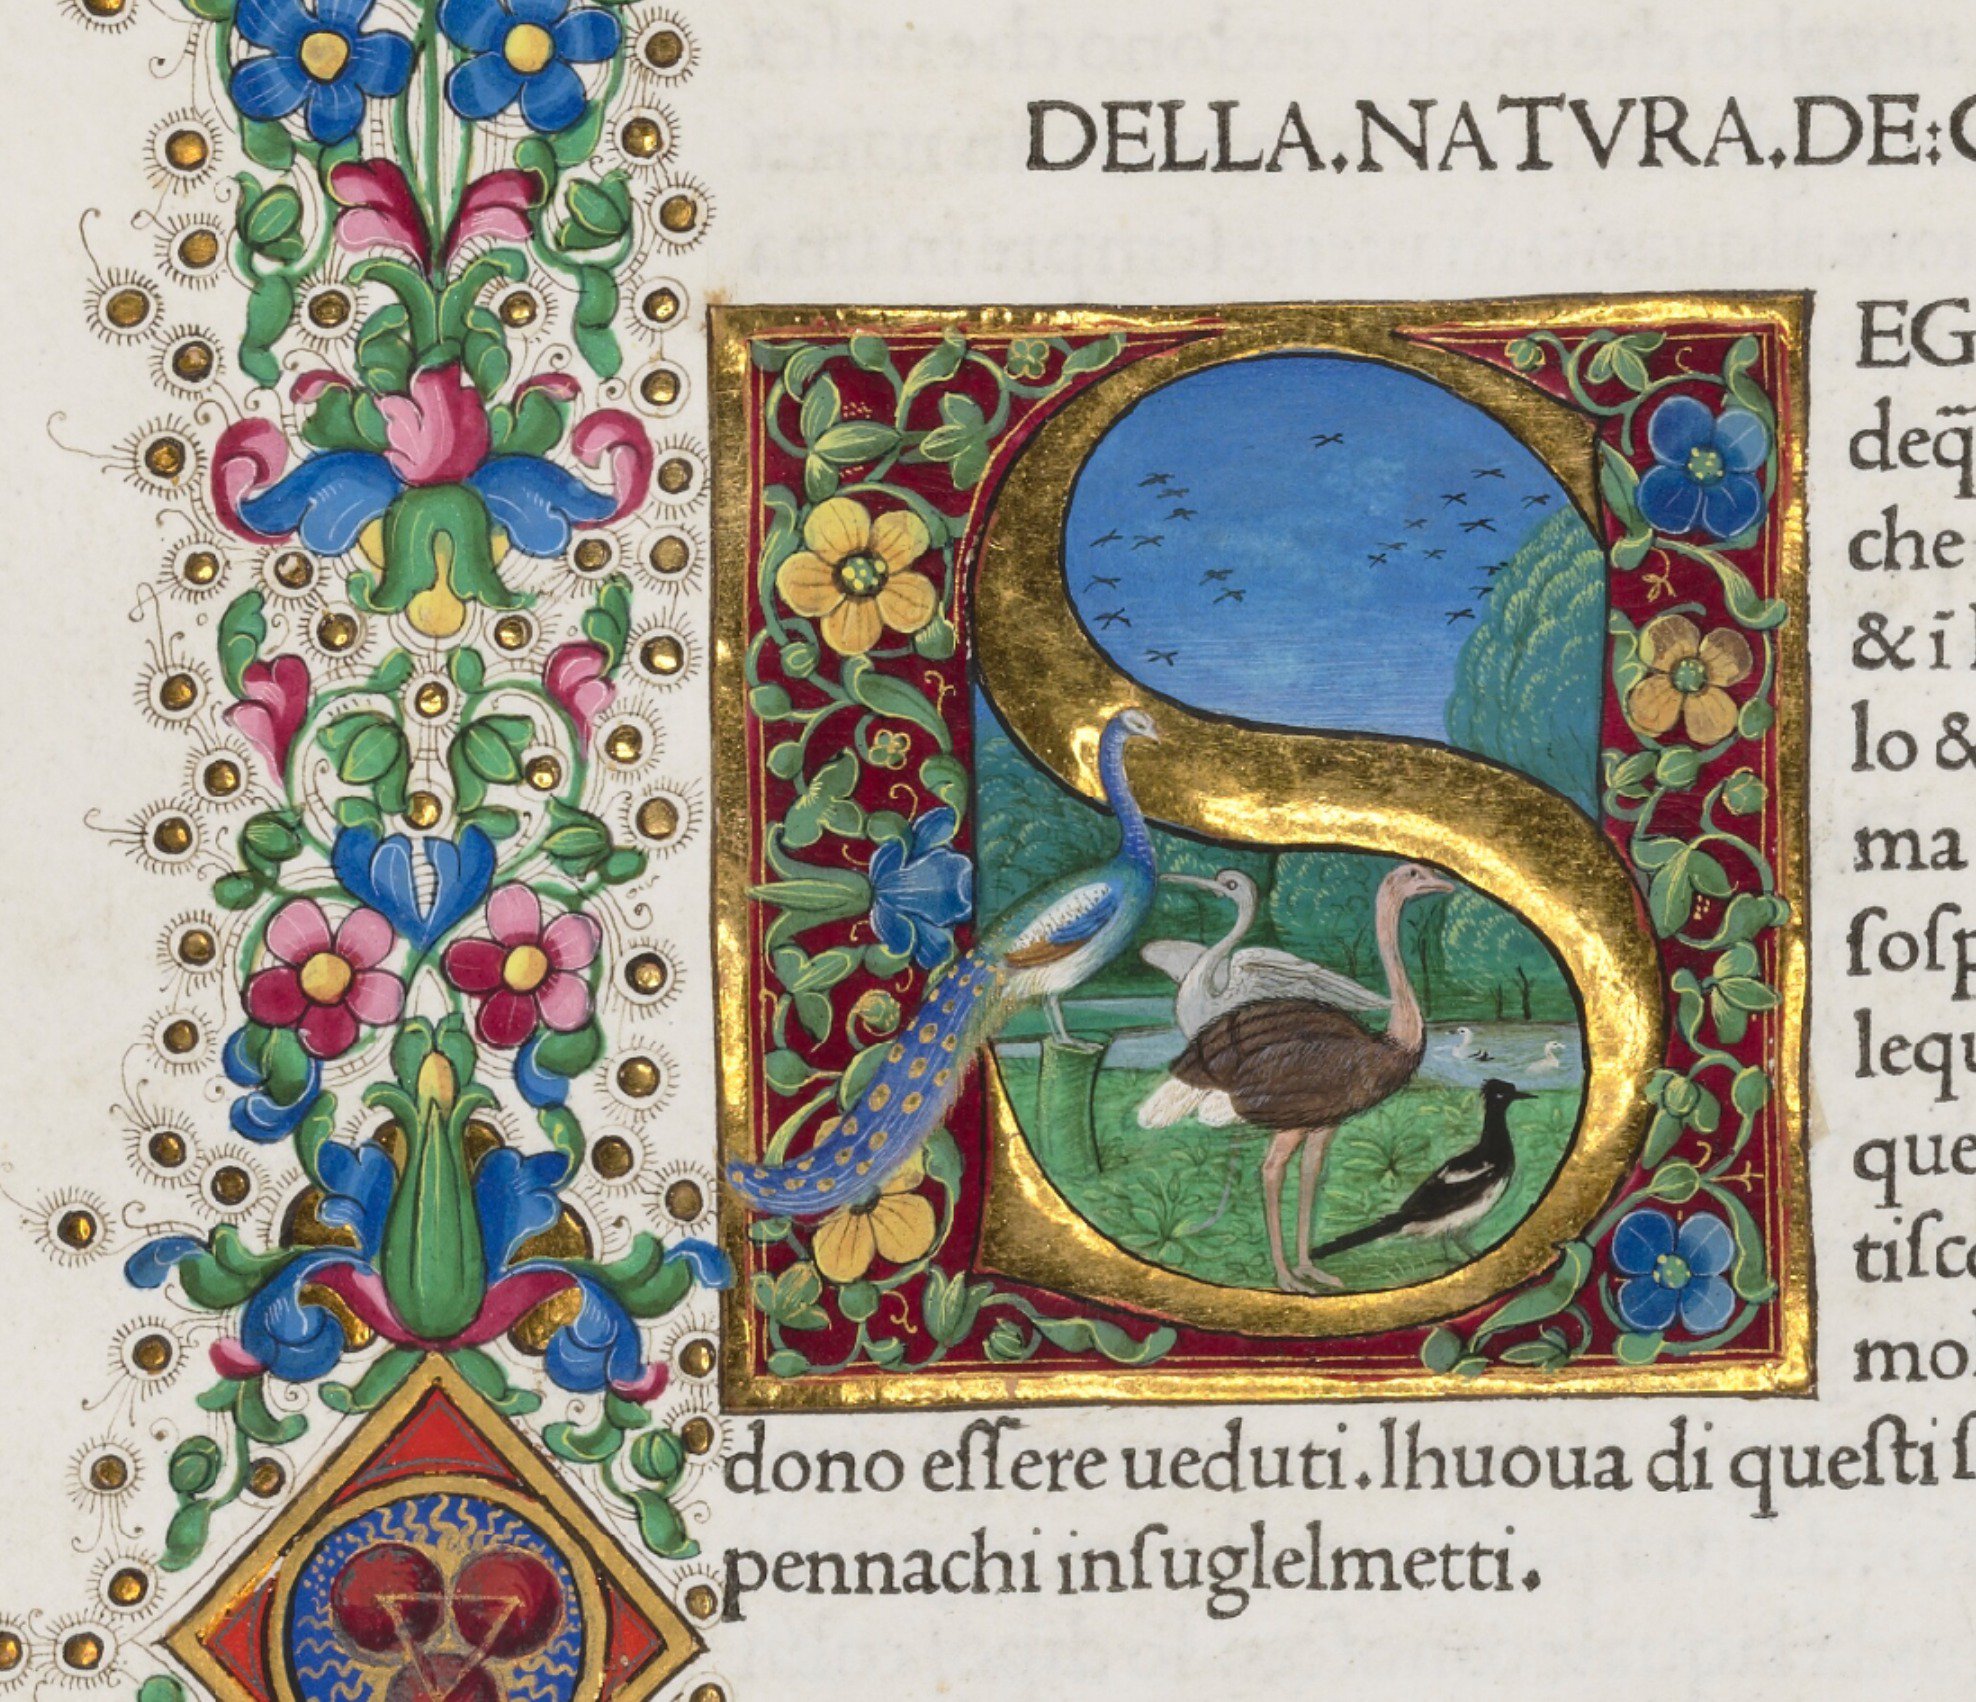 DELLA.NATVRA.DE:
S EG
deq̃
che
& ī
lo &
ma
ſoſp
lequ
que
tiſco
mol
dono eſſere ueduti. lhuoua di queſti ſ
pennachi inſuglelmetti.